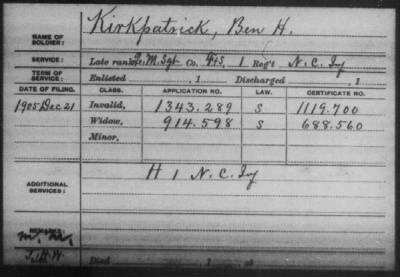 NAME OF SOLDIER: Kirkpatrick, Ben H.
SERVICE: Late rank, M. Sgt Co. F&S, 1 Reg't N. C. Inf
TERM OF SERVICE: Enlisted , 1 Discharged , 1
DATE OF FILING. CLASS. APPLICATION NO. LAW. CERTIFICATE NO.
1905 Dec. 21 Invalid, 1343.289 S 1119.700
Widow, 914.598 S 688.560
Minor,
ADDITIONAL SERVICES: H 1 N. C. Inf
REMARKS:
Died , 1 , at